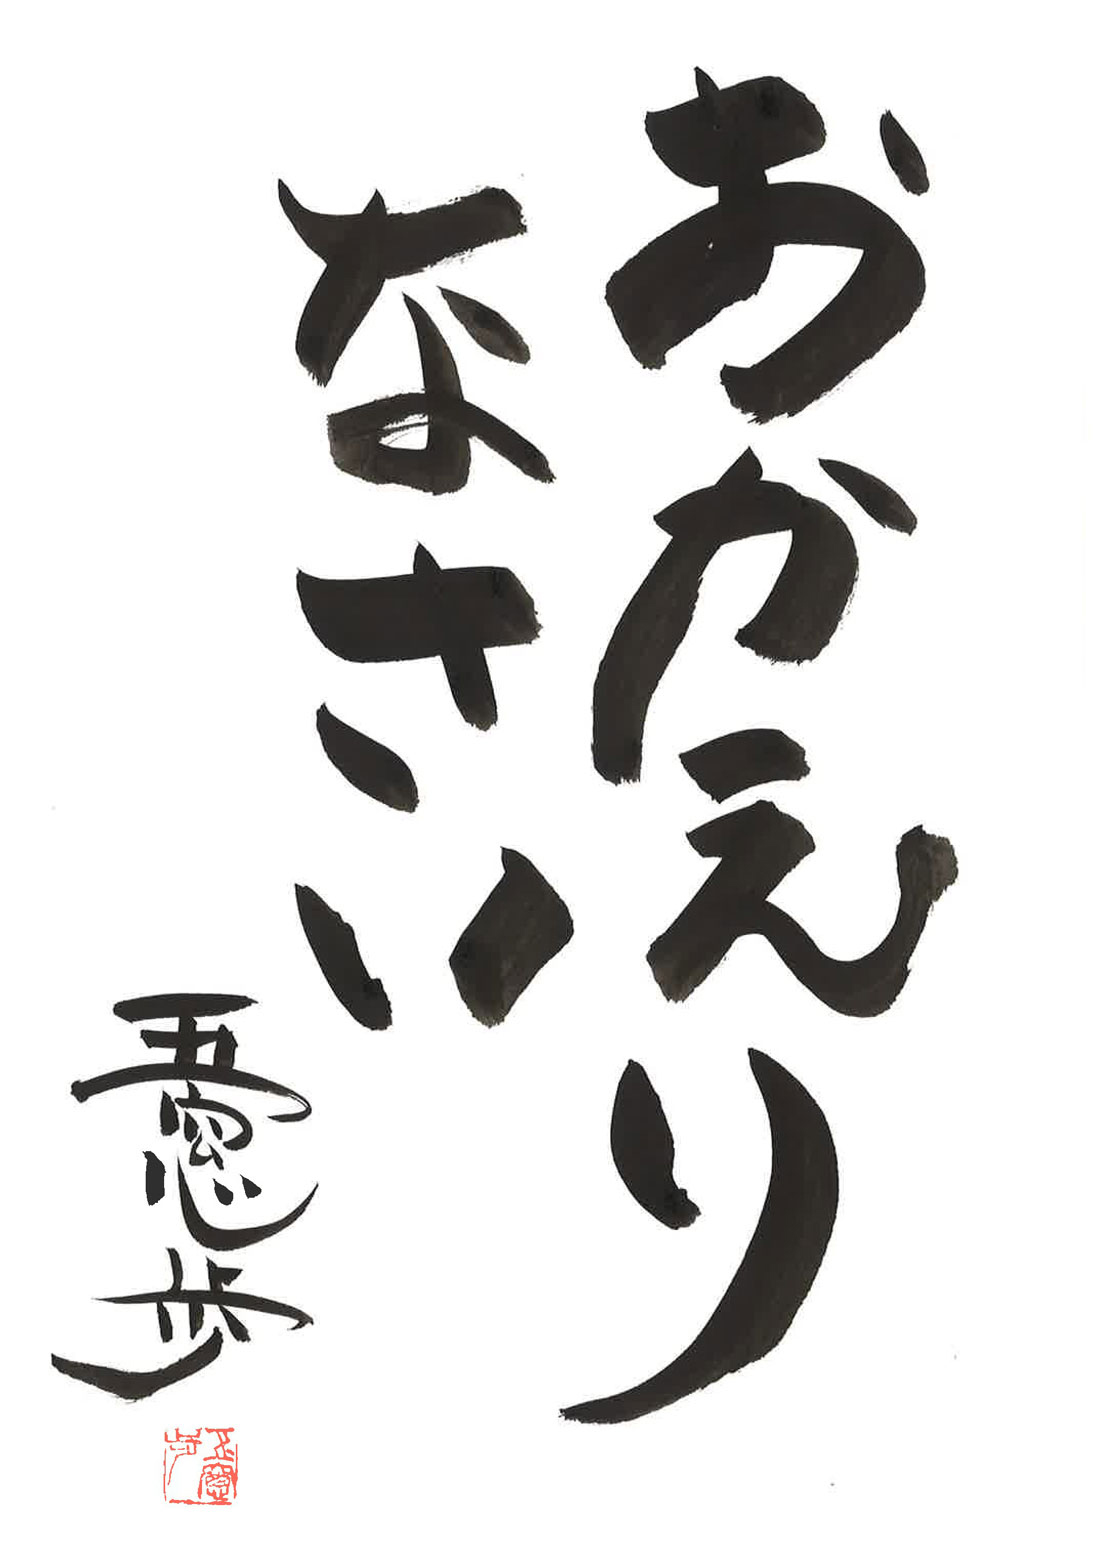 おかえり
なさい
五窓歩